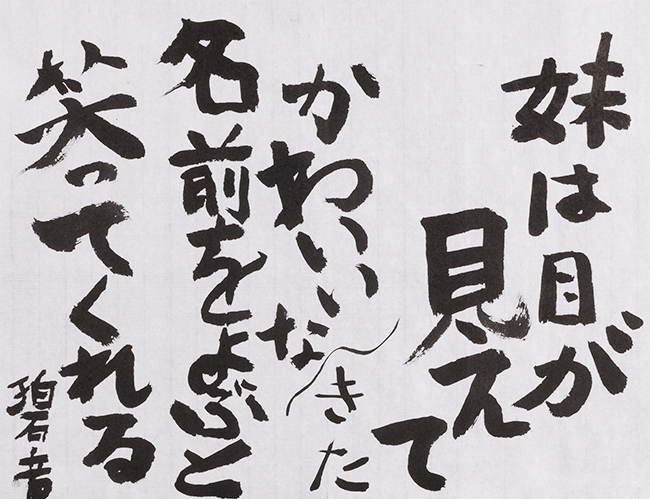 妹は目が
見えて
きた
かわいいな
名前をよぶと
笑ってくれる
碧音